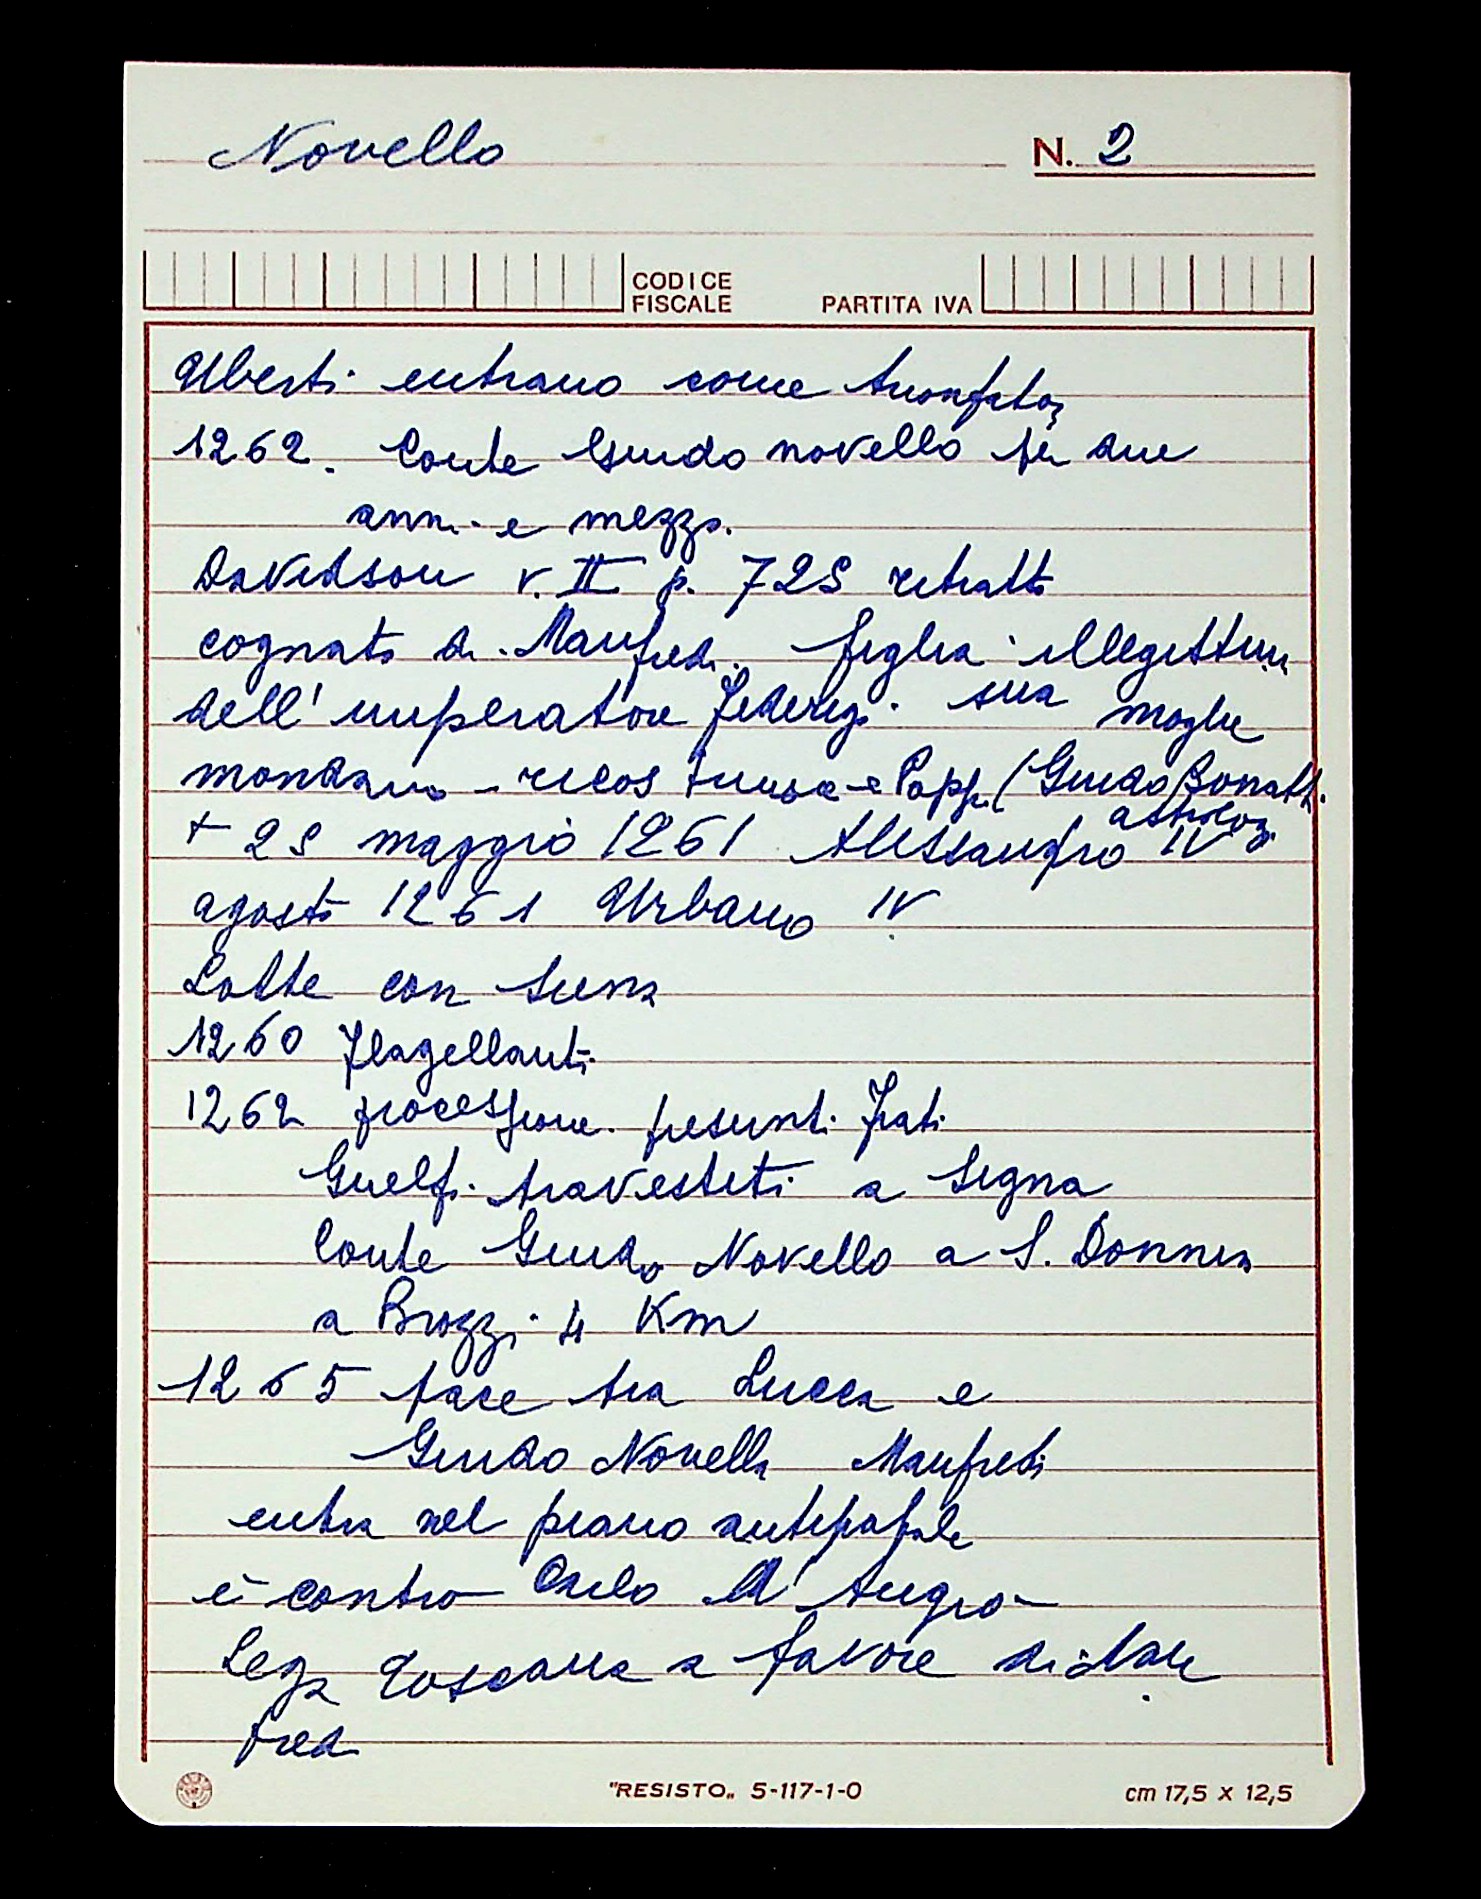 Novello N. 2
CODICE
FISCALE PARTITA IVA
Uberti entrano come trionfatori
1262. Conte Guido novello per due
anni e mezzo.
Davidson v. II p. 725 ritratto
cognato di Manfredi. figlia illegittima
dell'imperatore Federigo. sua moglie
mondano - e Poppi (Guido Bonatti
astrologo
+ 25 maggio 1261 Alessandro IV
agosto 1261 Urbano IV
Lotte con Siena
1260 Flagellanti
1262 processione. presenti Frati
Guelfi travestiti a Signa
Conte Guido Novello a S. Donnino
a Brozzi 4 Km
1265 pace tra Lucca e
Guido Novello Manfredi
entra nel piano antipapale
è contro Carlo d'Angiò -
Lega Toscana a favore di Man
fredi
"RESISTO„ 5-117-1-0 cm 17,5 x 12,5